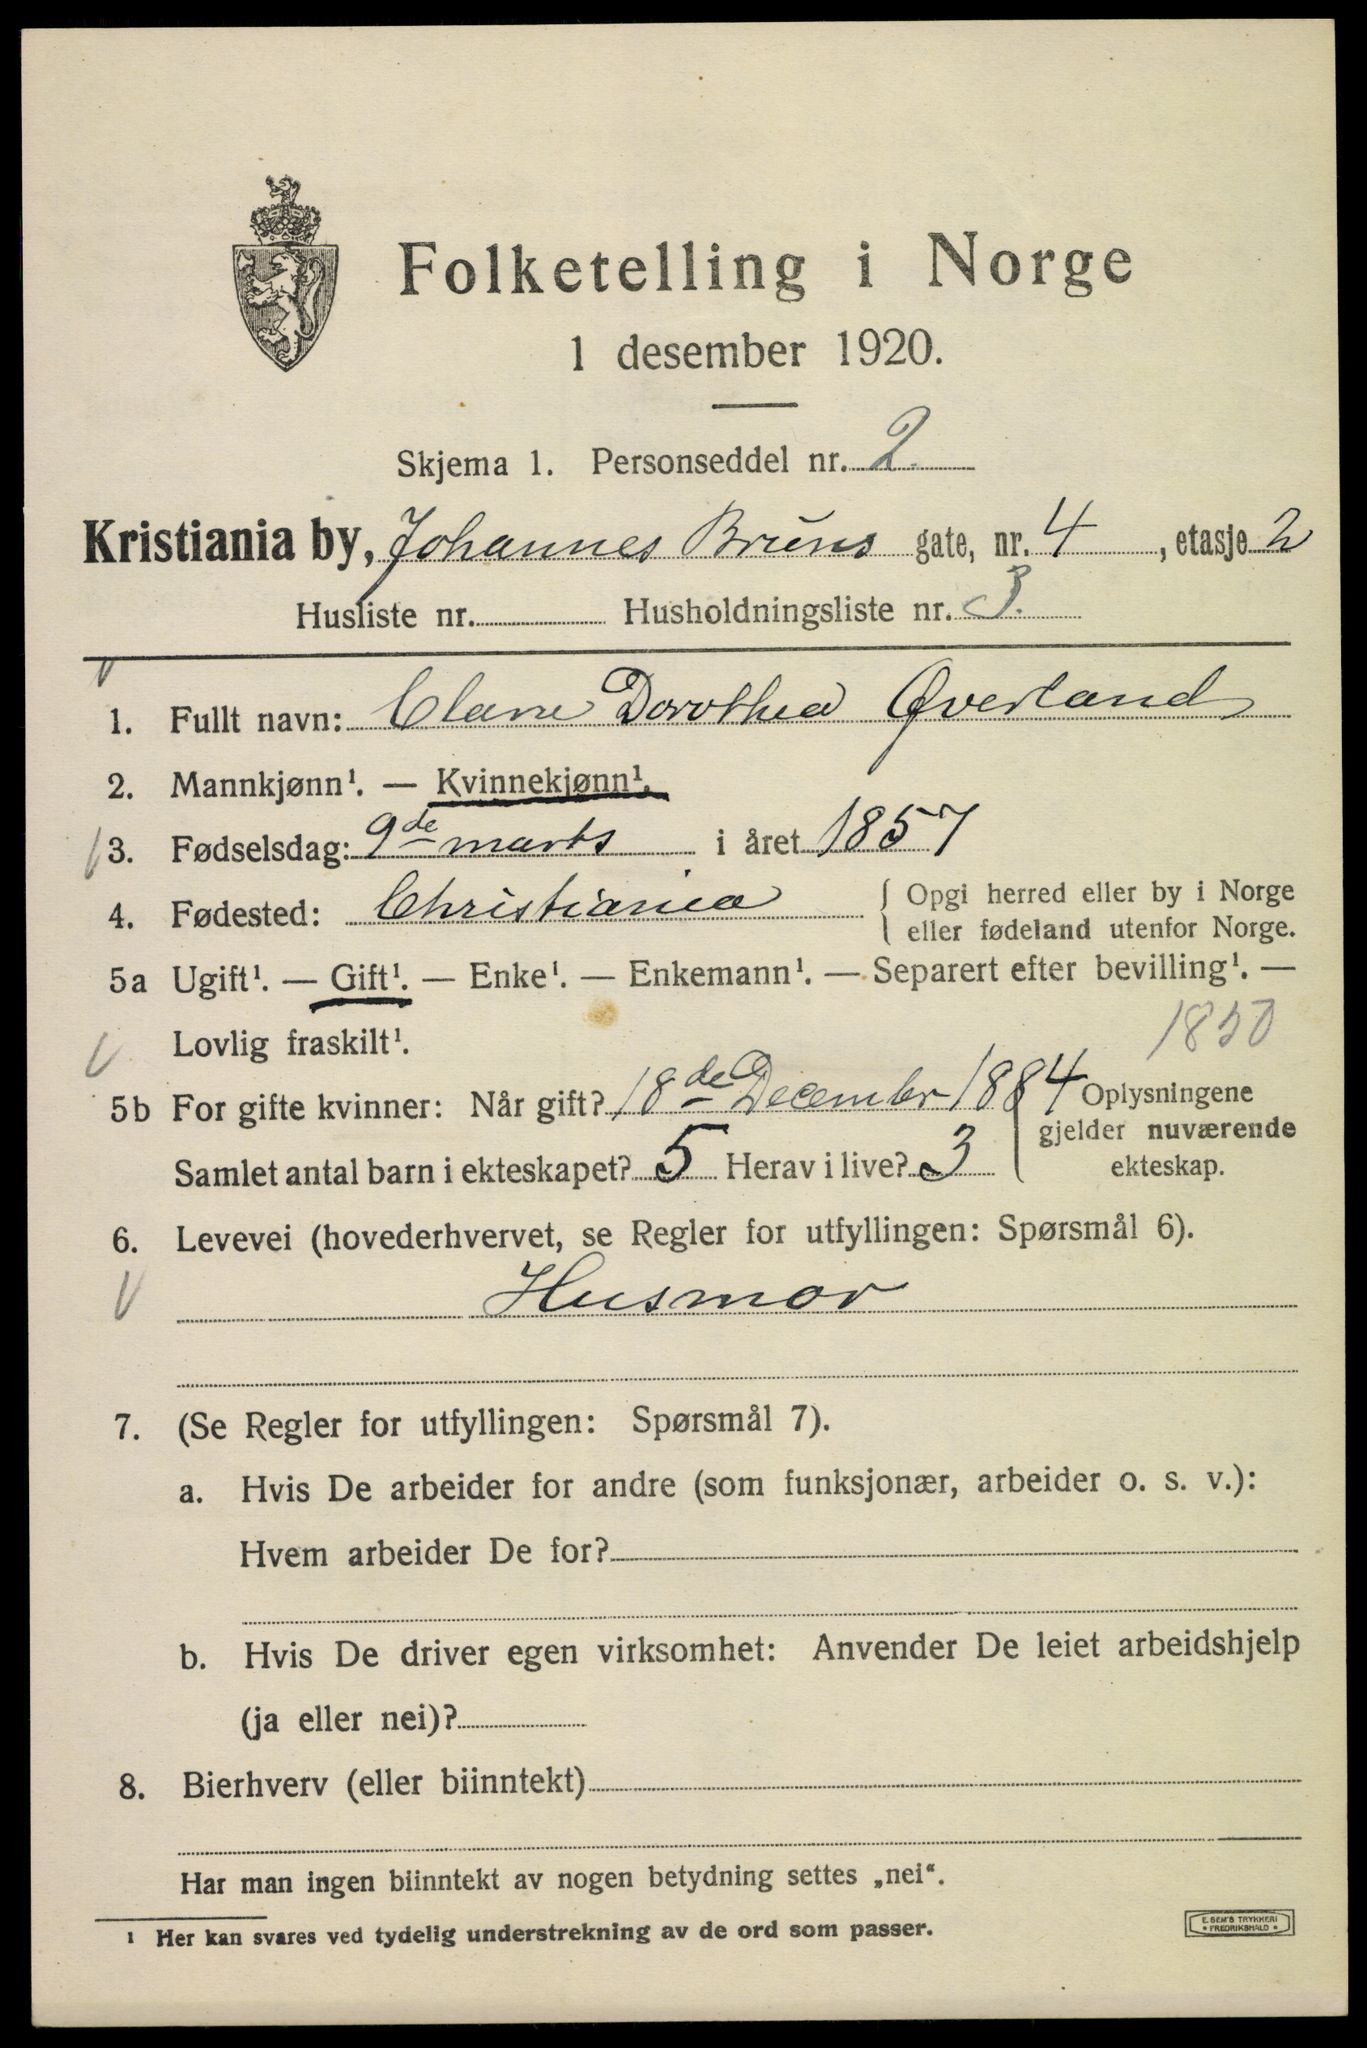 Folketelling i Norge
1 desember 1920.
Skjema 1. Personseddel nr. 2.
Kristiania by, Johannes Bruns gate, nr. 4, etasje 2
Husliste nr. Husholdningsliste nr. 3.
1. Fullt navn: Clara Dorothea Øverland
2. Mannkjønn¹. — Kvinnekjønn¹.
3. Fødselsdag: 9de marts i året 1857
4. Fødested: Christiania { Opgi herred eller by i Norge
eller fødeland utenfor Norge.
5a Ugift¹. — Gift¹. — Enke¹. — Enkemann¹. — Separert efter bevilling¹. —
Lovlig fraskilt¹. 1850
5b For gifte kvinner: Når gift? 18de December 1884 Oplysningene
gjelder nuværende
Samlet antal barn i ekteskapet? 5 Herav i live? 3 ekteskap.
6. Levevei (hovederhvervet, se Regler for utfyllingen: Spørsmål 6).
Husmor
7. (Se Regler for utfyllingen: Spørsmål 7).
a. Hvis De arbeider for andre (som funksjonær, arbeider o. s. v.):
Hvem arbeider De for?
b. Hvis De driver egen virksomhet: Anvender De leiet arbeidshjelp
(ja eller nei)?
8. Bierhverv (eller biinntekt)
Har man ingen biinntekt av nogen betydning settes „nei“.
¹ Her kan svares ved tydelig understrekning av de ord som passer.
E. SEM'S TRYKKERI
* FREDRIKSHALD *